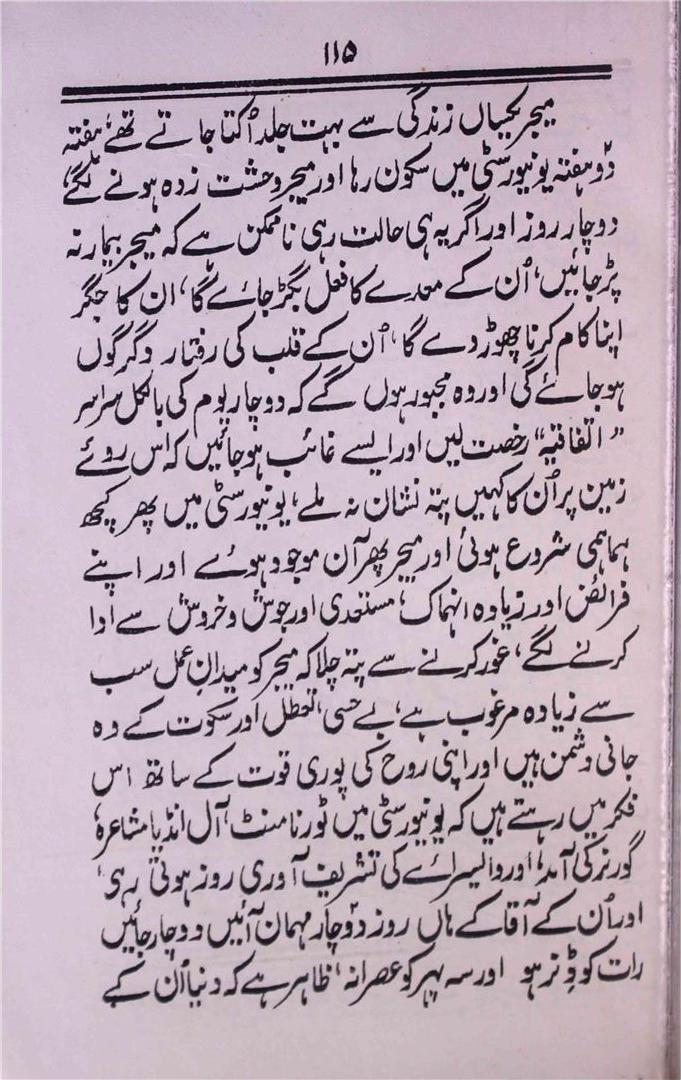 ۱۱۵
میجر یکساں زندگی سے بہت جلد اُکتا جاتے تھے، ہفتہ
دو ہفتہ یونیورسٹی میں سکون رہا اور میجر وحشت زدہ ہونے لگے،
دو چار روز اور اگر یہ ہی حالت رہی ناممکن ہے کہ میجر بیمار نہ
پڑ جائیں، اُن کے معدے کا فعل بگڑ جائے گا، ان کا جگر
اپنا کام کرنا چھوڑ دے گا، اُن کے قلب کی رفتار دگرگوں
ہو جائے گی اور وہ مجبور ہوں گے کہ دو چار یوم کی بالکل سراسر
”اتفاقیہ“ رخصت لیں اور ایسے غائب ہو جائیں کہ اس روئے
زمین پر اُن کا کہیں پتہ نشان نہ ملے، یونیورسٹی میں پھر کچھ
ہماہمی شروع ہوئی اور میجر پھر آن موجود ہوئے اور اپنے
فرائض اور زیادہ انہماک، مستعدی اور جوش و خروش سے ادا
کرنے لگے، غور کرنے سے پتہ چلا کہ میجر کو میدانِ عمل سب
سے زیادہ مرغوب ہے، بے حسی، تعطل اور سکوت کے وہ
جانی دشمن ہیں اور اپنی روح کی پوری قوت کے ساتھ اس
فکر میں رہتے ہیں کہ یونیورسٹی میں ٹورنامنٹ، آل انڈیا مشاعرہ،
گورنر کی آمد، اور وائسرائے کی تشریف آوری روز ہوتی رہی،
اور اُن کے آقا کے ہاں روز دو چار مہمان آئیں دو چار جائیں
رات کو ڈِنر ہو اور سہ پہر کو عصرانہ، ظاہر ہے کہ دنیا اُن کے